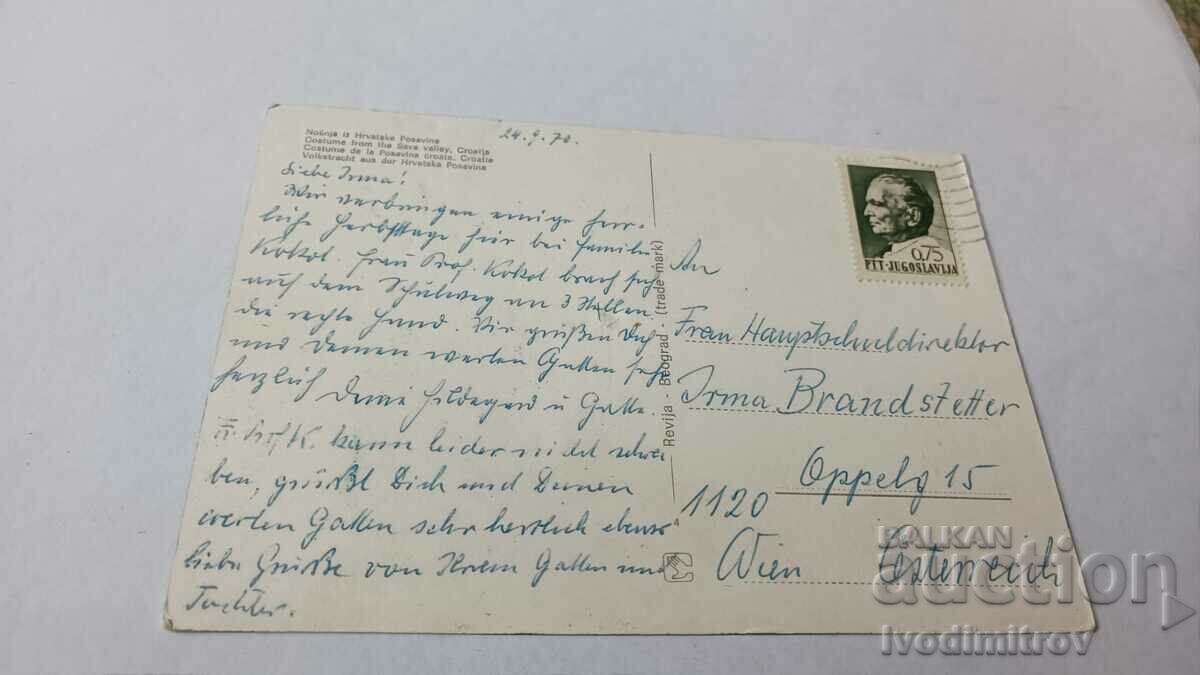 Nošnja iz Hrvatske Posavine
Costume from the Sava valley, Croatia
Costume de la Posavina croate, Croatie
Volkstracht aus der Hrvatska Posavina
24.9.70.
Liebe Irma!
Wir verbringen einige herr-
liche Herbsttage hier bei Familie
Kokol. Frau Prof. Kokol brach sich
auf dem Schulweg an 3 Stellen
die rechte Hand. Wir grüßen Dich
und Deinen werten Gatten sehr
herzlich Deine Hildegard u Gatte.
kann leider nicht schrei
ben, grüßt Dich und Deinen
werten Gatten sehr herzlich ebenso
liebe Grüße von Ihrem Gatten und
Tochter.
Revija - Beograd - (trade mark)
PTT-JUGOSLAVIJA
0,75
An
Frau Hauptschuldirektor
Irma Brandstetter
Oppelg 15
1120
Wien Österreich
BALKAN
auction
Ivodimitrov